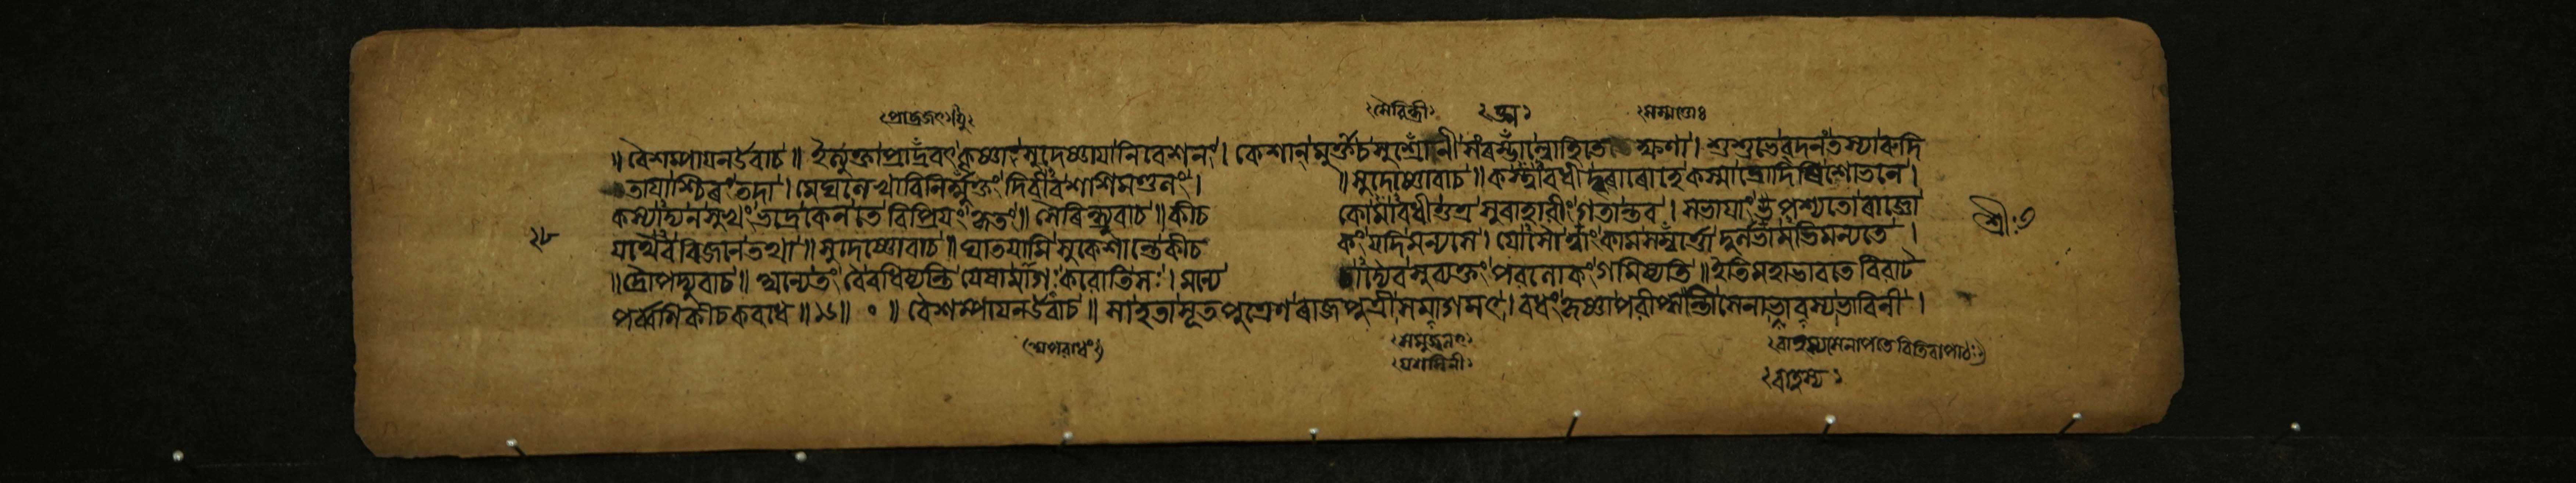 প্রাদ্রজৎ
সৈরিন্ধ্রী
॥ বৈশম্পায়ন উবাচ ॥ ইত্যুক্ত্বা প্রাদ্রবৎ কৃষ্ণা সুদেষ্ণায়া নিবেশনং । কেশান্ মুক্ত্বা চ সুশ্রোণী সংৰম্ভাল্লোহিতেক্ষণা । শুশুভে বদনং তস্যা ৰুদি
তায়াশ্চিৰং তদা । মেঘলেখাবিনির্ম্মুক্তং দিবীব শশিমণ্ডলং । ॥ সুদেষ্ণোবাচ ॥ কস্ত্বাবধীদ্বৰাৰোহে কস্মাদ্রোদিষি শোভনে ।
কস্যাদ্য ন সুখং ভদ্রে কেন তে বিপ্রিয়ং কৃতং ॥ সৈৰিন্ধ্র্যুবাচ ॥ কীচ কো মাবধীত্তত্র সুৰাহারীং গতান্তব । সভায়াং পশ্যতো ৰাজ্ঞো
যথৈব বিজনে তথা ॥ সুদেষ্ণোবাচ ॥ ঘাতয়ামি সুকেশান্তে কীচ কং যদি মন্যসে । যোসৌ ত্বাং কামসম্মত্তো দুর্লভামভিমন্যতে ।
২৮
শ্রীঃ
॥ দ্রৌপদ্যুবাচ ॥ অন্যে তং বৈ বধিষ্যন্তি যেষামাগঃ করোতি সঃ । মন্যে চাদ্যৈব সুব্যক্তং পরলোকং গমিষ্যতি ॥ ইতি মহাভারতে বিরাট
পর্ব্বণি কীচকবধে ॥১৬॥ ০ ॥ বৈশম্পায়ন উবাচ ॥ সা হতা সূতপুত্রেণ ৰাজপুত্রী সমাগমৎ । বধং কৃষ্ণা পরীপ্সন্তী ভাবিনী ।
অপরাধং
যশস্বিনী
বাহস্য